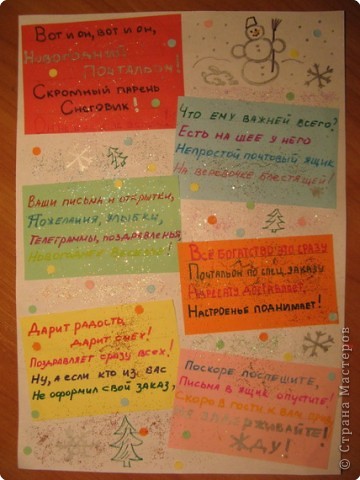 Вот и он, вот и он,
Новогодний
Почтальон!
Скромный парень
Снеговик!
Что ему важней всего?
Есть на шее у него
Непростой почтовый ящик
На веревочке блестящей!
Ваши письма и открытки,
Пожелания, улыбки,
Телеграммы, поздравленья
Новогоднего
Всё богатство это сразу
Почтальон по спец. заказу
Адресату доставляет,
Настроенье поднимает!
Дарит радость,
дарит смех!
Поздравляет сразу всех!
Ну, а если кто из вас
Не оформил свой заказ,
Поскорее поспешите,
Письма в ящик опустите!
Скоро в гости к вам
Не задерживайте!
Жду!
© Страна Мастеров